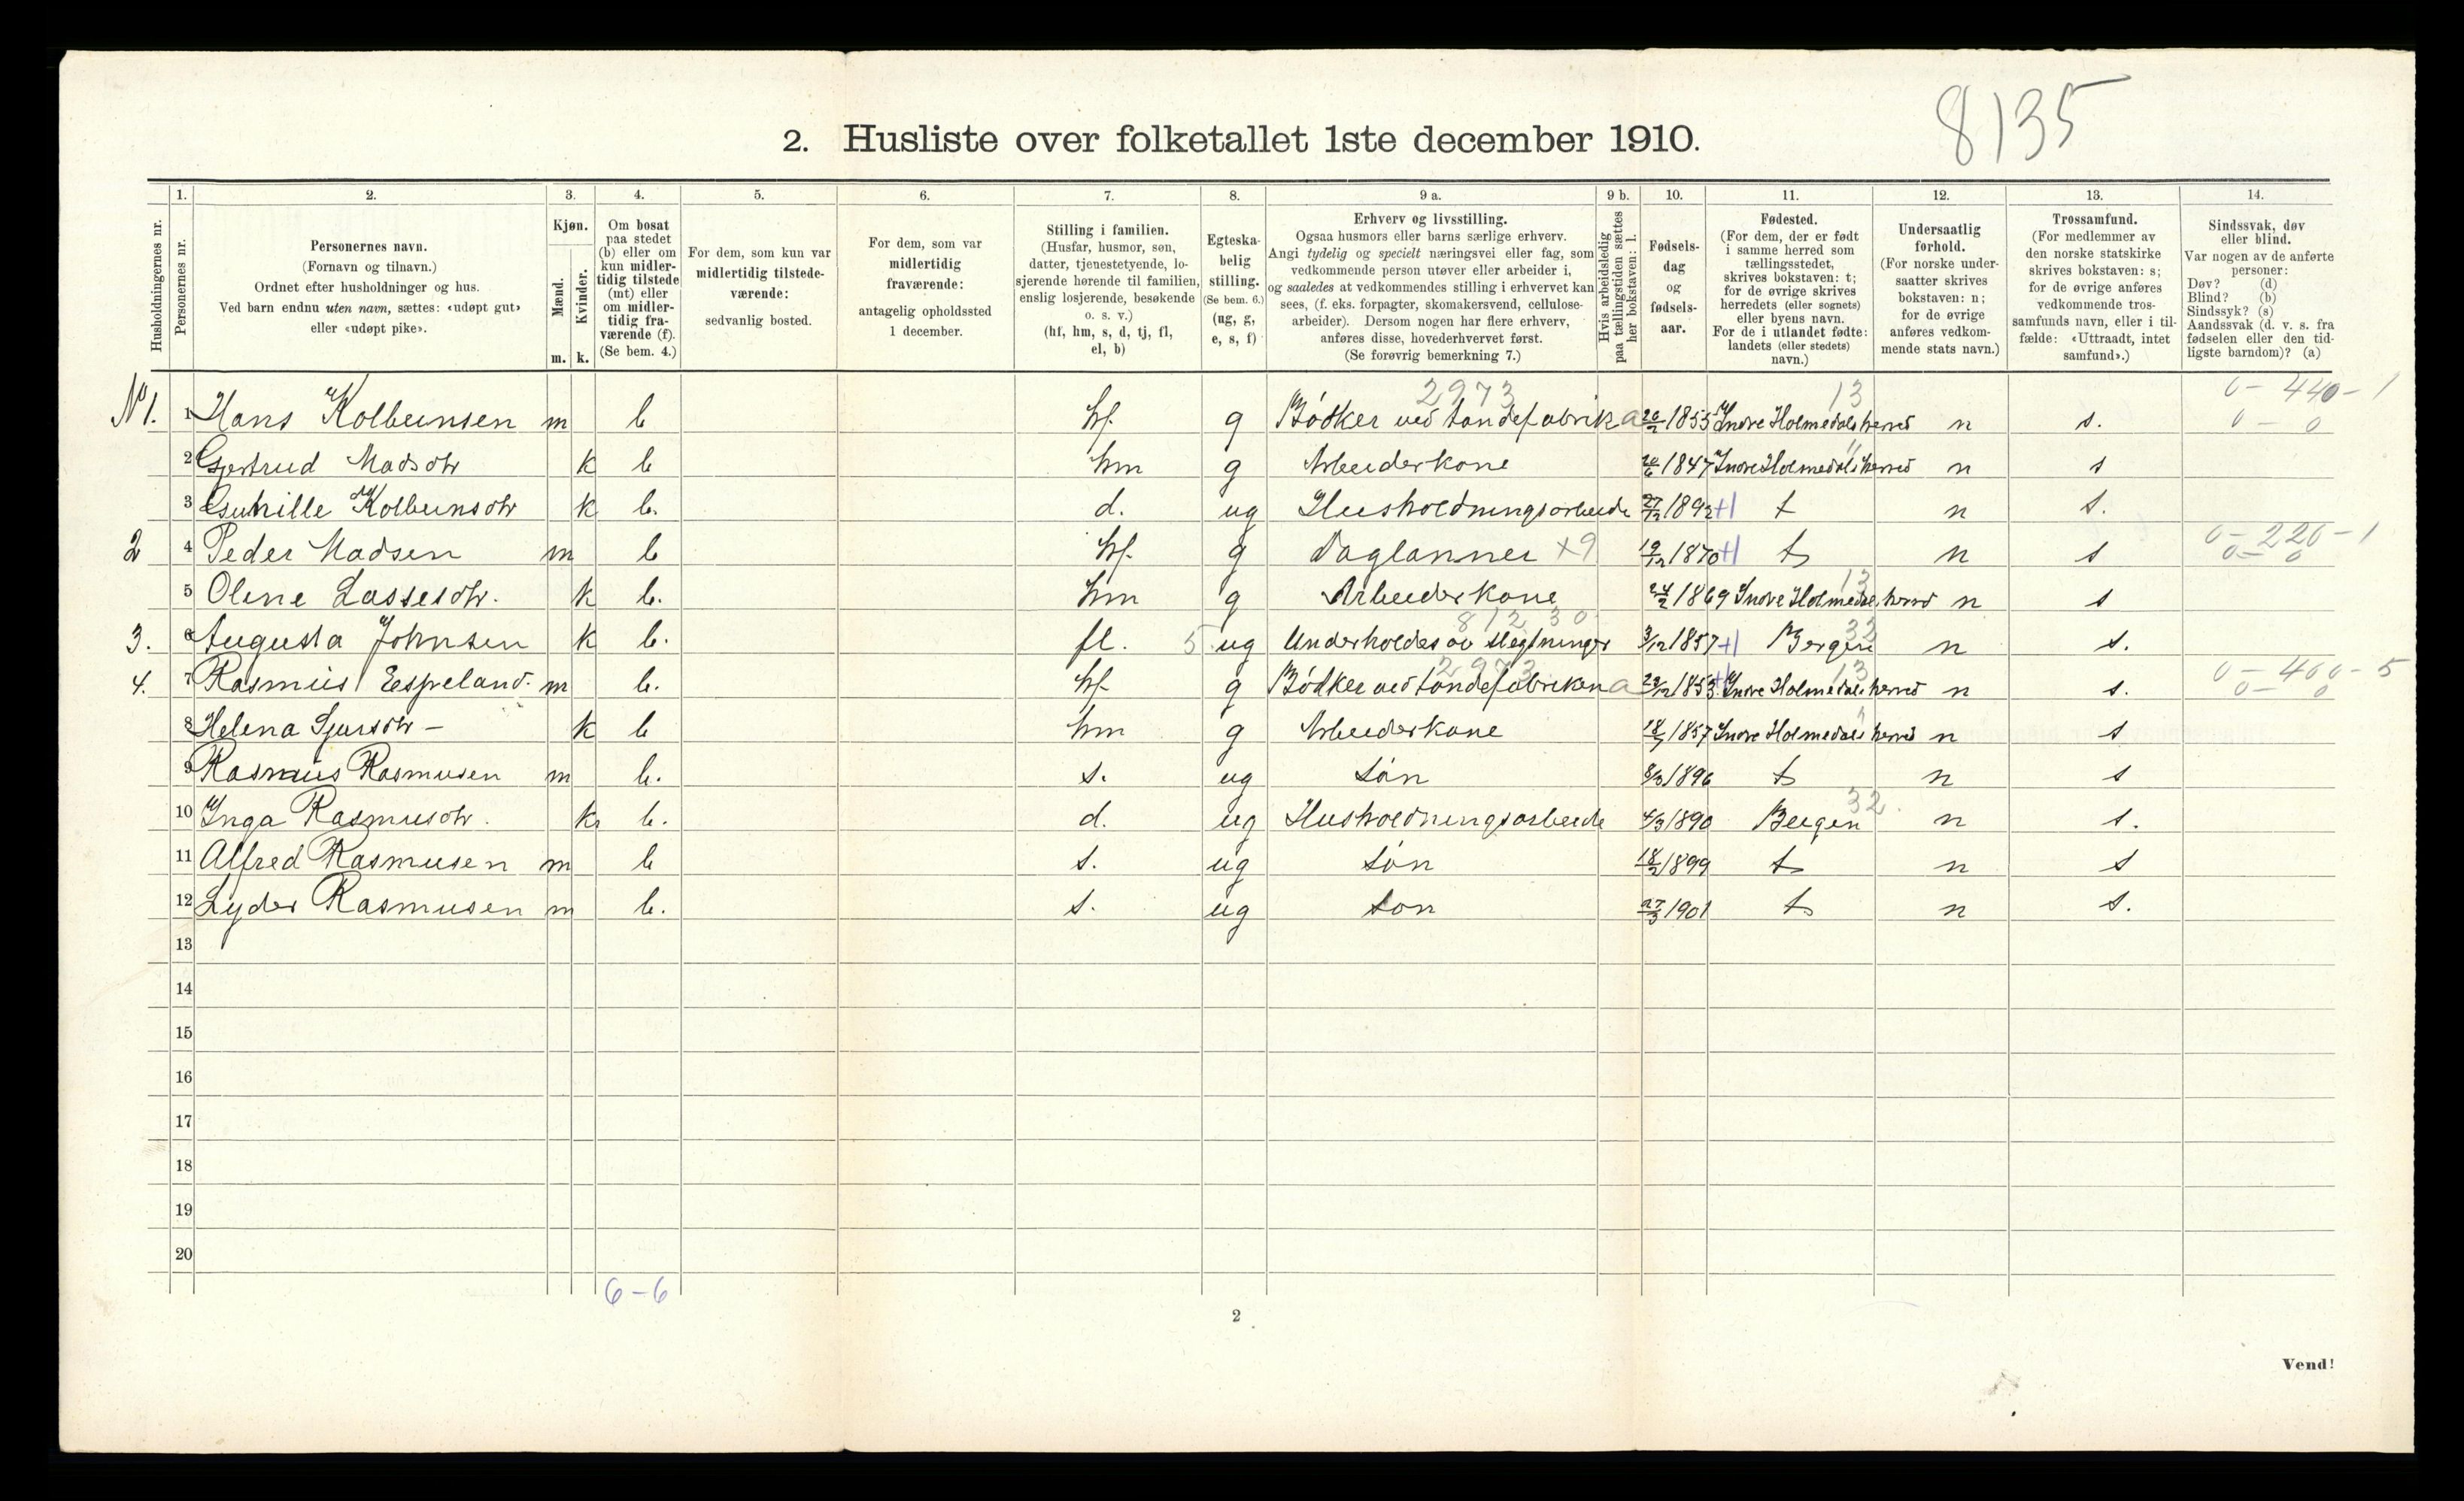 8135
2. Husliste over folketallet 1ste december 1910.
1. 2. 3. 4. 5. 6. 7. 8. 9 a. 9 b. 10. 11. 12. 13. 14.
Husholdningernes nr.
Personernes nr.
Personernes navn.
(Fornavn og tilnavn.)
Ordnet efter husholdninger og hus.
Ved barn endnu uten navn, sættes: «udøpt gut»
eller «udøpt pike».
Kjøn.
Mænd. Kvinder.
m. k.
Om bosat
paa stedet
(b) eller om
kun midler-
tidig tilstede
(mt) eller
om midler-
tidig fra-
værende (f).
(Se bem. 4.)
For dem, som kun var
midlertidig tilstede-
værende:
sedvanlig bosted.
For dem, som var
midlertidig
fraværende:
antagelig opholdssted
1 december.
Stilling i familien.
(Husfar, husmor, søn,
datter, tjenestetyende, lo-
sjerende hørende til familien,
enslig losjerende, besøkende
o. s. v.)
(hf, hm, s, d, tj, fl,
el, b)
Egteska-
belig
stilling.
(Se bem. 6.)
(ug, g,
e, s, f)
Erhverv og livsstilling.
Ogsaa husmors eller barns særlige erhverv.
Angi tydelig og specielt næringsvei eller fag, som
vedkommende person utøver eller arbeider i,
og saaledes at vedkommendes stilling i erhvervet kan
sees, (f. eks. forpagter, skomakersvend, cellulose-
arbeider). Dersom nogen har flere erhverv,
anføres disse, hovederhvervet først.
(Se forøvrig bemerkning 7.)
Hvis arbeidsledig
paa tællingstiden sættes
her bokstaven: l.
Fødsels-
dag
og
fødsels-
aar.
Fødested.
(For dem, der er født
i samme herred som
tællingsstedet,
skrives bokstaven: t;
for de øvrige skrives
herredets (eller sognets)
eller byens navn.
For de i utlandet fødte:
landets (eller stedets)
navn.)
Undersaatlig
forhold.
(For norske under-
saatter skrives
bokstaven: n;
for de øvrige
anføres vedkom-
mende stats navn.)
Trossamfund.
(For medlemmer av
den norske statskirke
skrives bokstaven: s;
for de øvrige anføres
vedkommende tros-
samfunds navn, eller i til-
fælde: «Uttraadt, intet
samfund».)
Sindssvak, døv
eller blind.
Var nogen av de anførte
personer:
Døv? (d)
Blind? (b)
Sindssyk? (s)
Aandssvak (d. v. s. fra
fødselen eller den tid-
ligste barndom)? (a)
2973 13 0 - 440 - 1
No 1. 1 Hans Kolbeinsen m b hf. g Bødker ved tøndefabrik a 20/2 1855 Indre Holmedals herred n s. 0 - 0
2 Gjertrud Madsdtr k b hm g Arbeiderkone 20/6 1847 Indre Holmedals herred n s
3 Gunhille Kolbeinsdtr k b. d. ug Husholdningsarbeide 27/12 1892 +1 t n s.
0 - 220 - 1
2 4 Peder Madsen m b hf. g Daglønner x9 19/12 1870 +1 t n s 0 - 0
13
5 Olene Lassesdtr. k b. hm g Arbeiderkone 24/2 1869 Indre Holmedal herred n s
812 30 32
3. 6 Augusta Johnsen k b. fl. 5 ug Underholdes av slegtninger 3/12 1857 +1 Bergen n s.
2973 13 0 - 400 - 5
4. 7 Rasmus Espeland. m b. hf g Bødker ved tøndefabriken a 22/12 1853 +1 Indre Holmedals herred n s. 0 - 0
8 Helena Sjursdtr - k b hm g Arbeiderkone 18/7 1857 Indre Holmedals herred n s
9 Rasmus Rasmusen m b. s. ug søn 8/3 1896 t n s
32
10 Inga Rasmusdtr. k b. d. ug Husholdningsarbeide 4/3 1890 Bergen n s.
11 Alfred Rasmusen m b s. ug søn 18/2 1899 t n s
12 Lyder Rasmusen m b. s. ug søn 27/3 1901 t n s.
13
14
15
16
17
18
19
20
6 - 6
2
Vend!